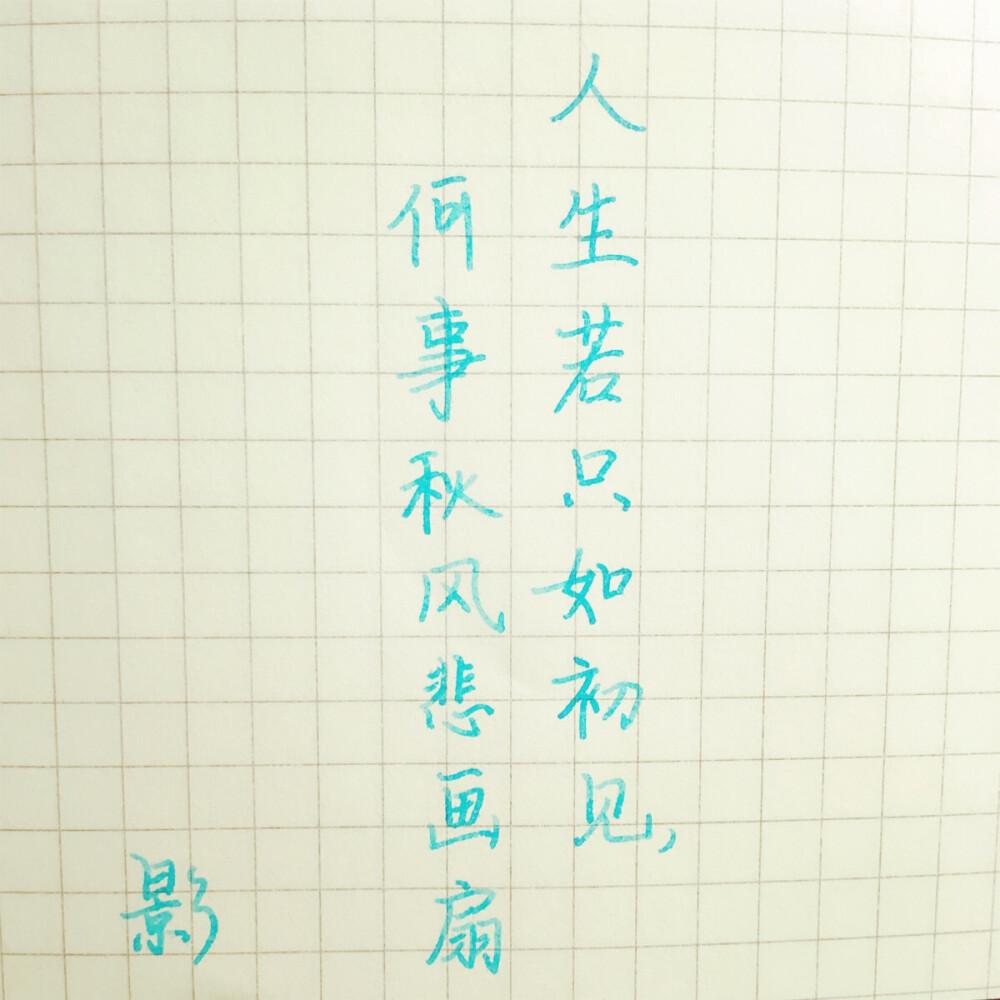 人生若只如初见，
何事秋风悲画扇
影